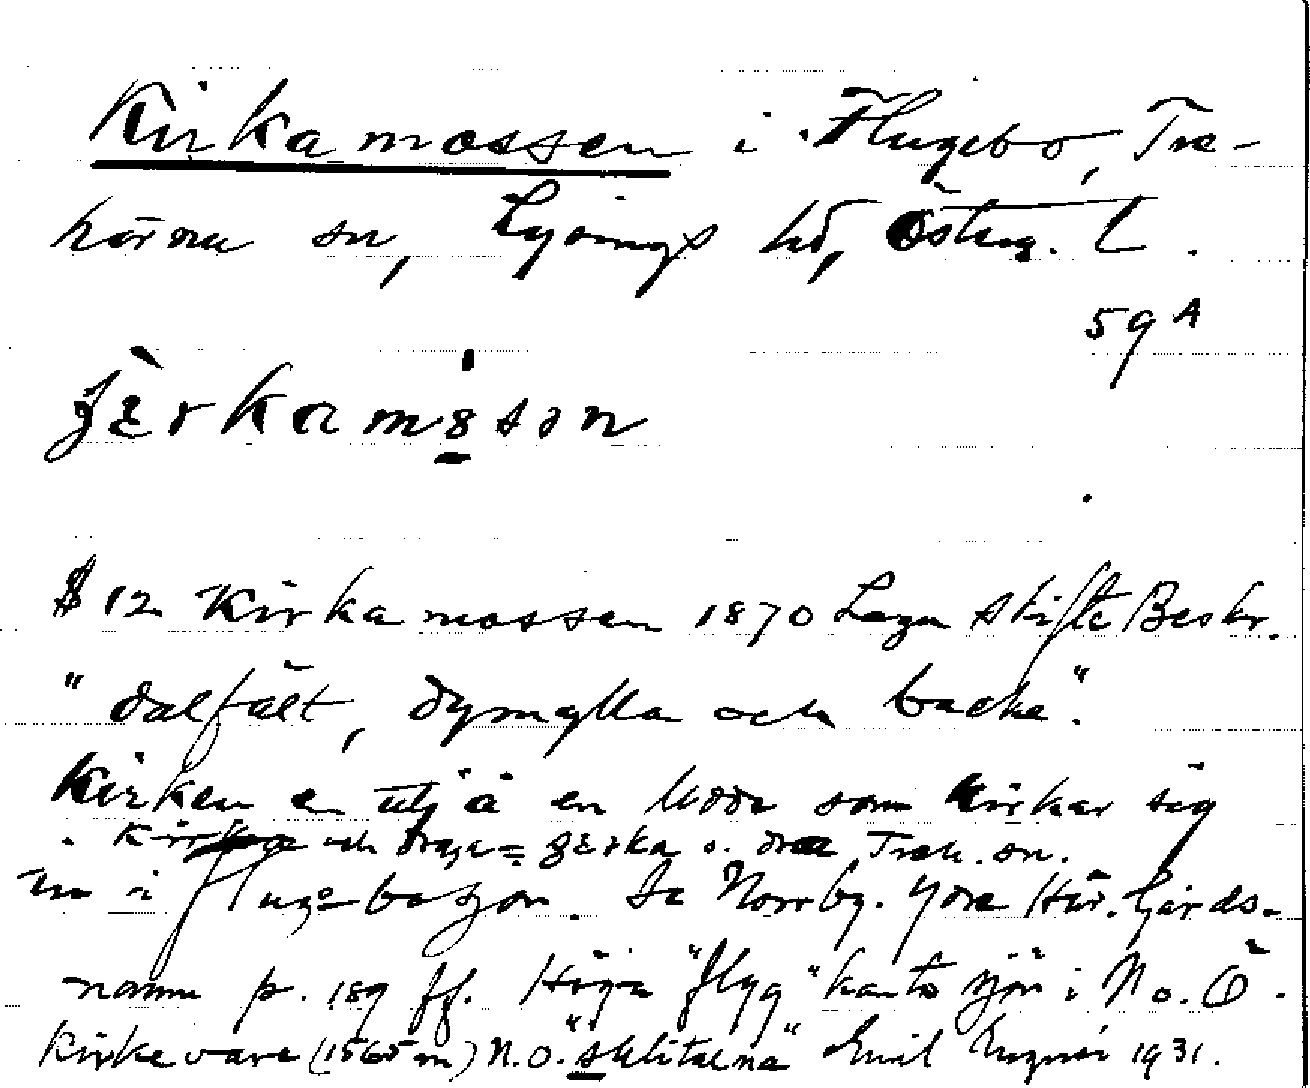 Kirkamossen i Flugebo, Tre-
hörna sn, Lysings hd, Österg. L.
59 A
kärkamosen
§ 12 Kirkamossen 1870 Laga skifte Beskr.
"dalfält, dymylla och backe".
Kirken en utj å en udde som kirkar sig
Kirka och draga = o. dra Treh. sn.
in i Flugebosjön. Se Norrby. Ydre Här. Gårds-
namn p. 189 ff. Höga "flyg"kanto sjön i N o. Ö.
Kirkevare (1565 m) N.O. Emil 1931.